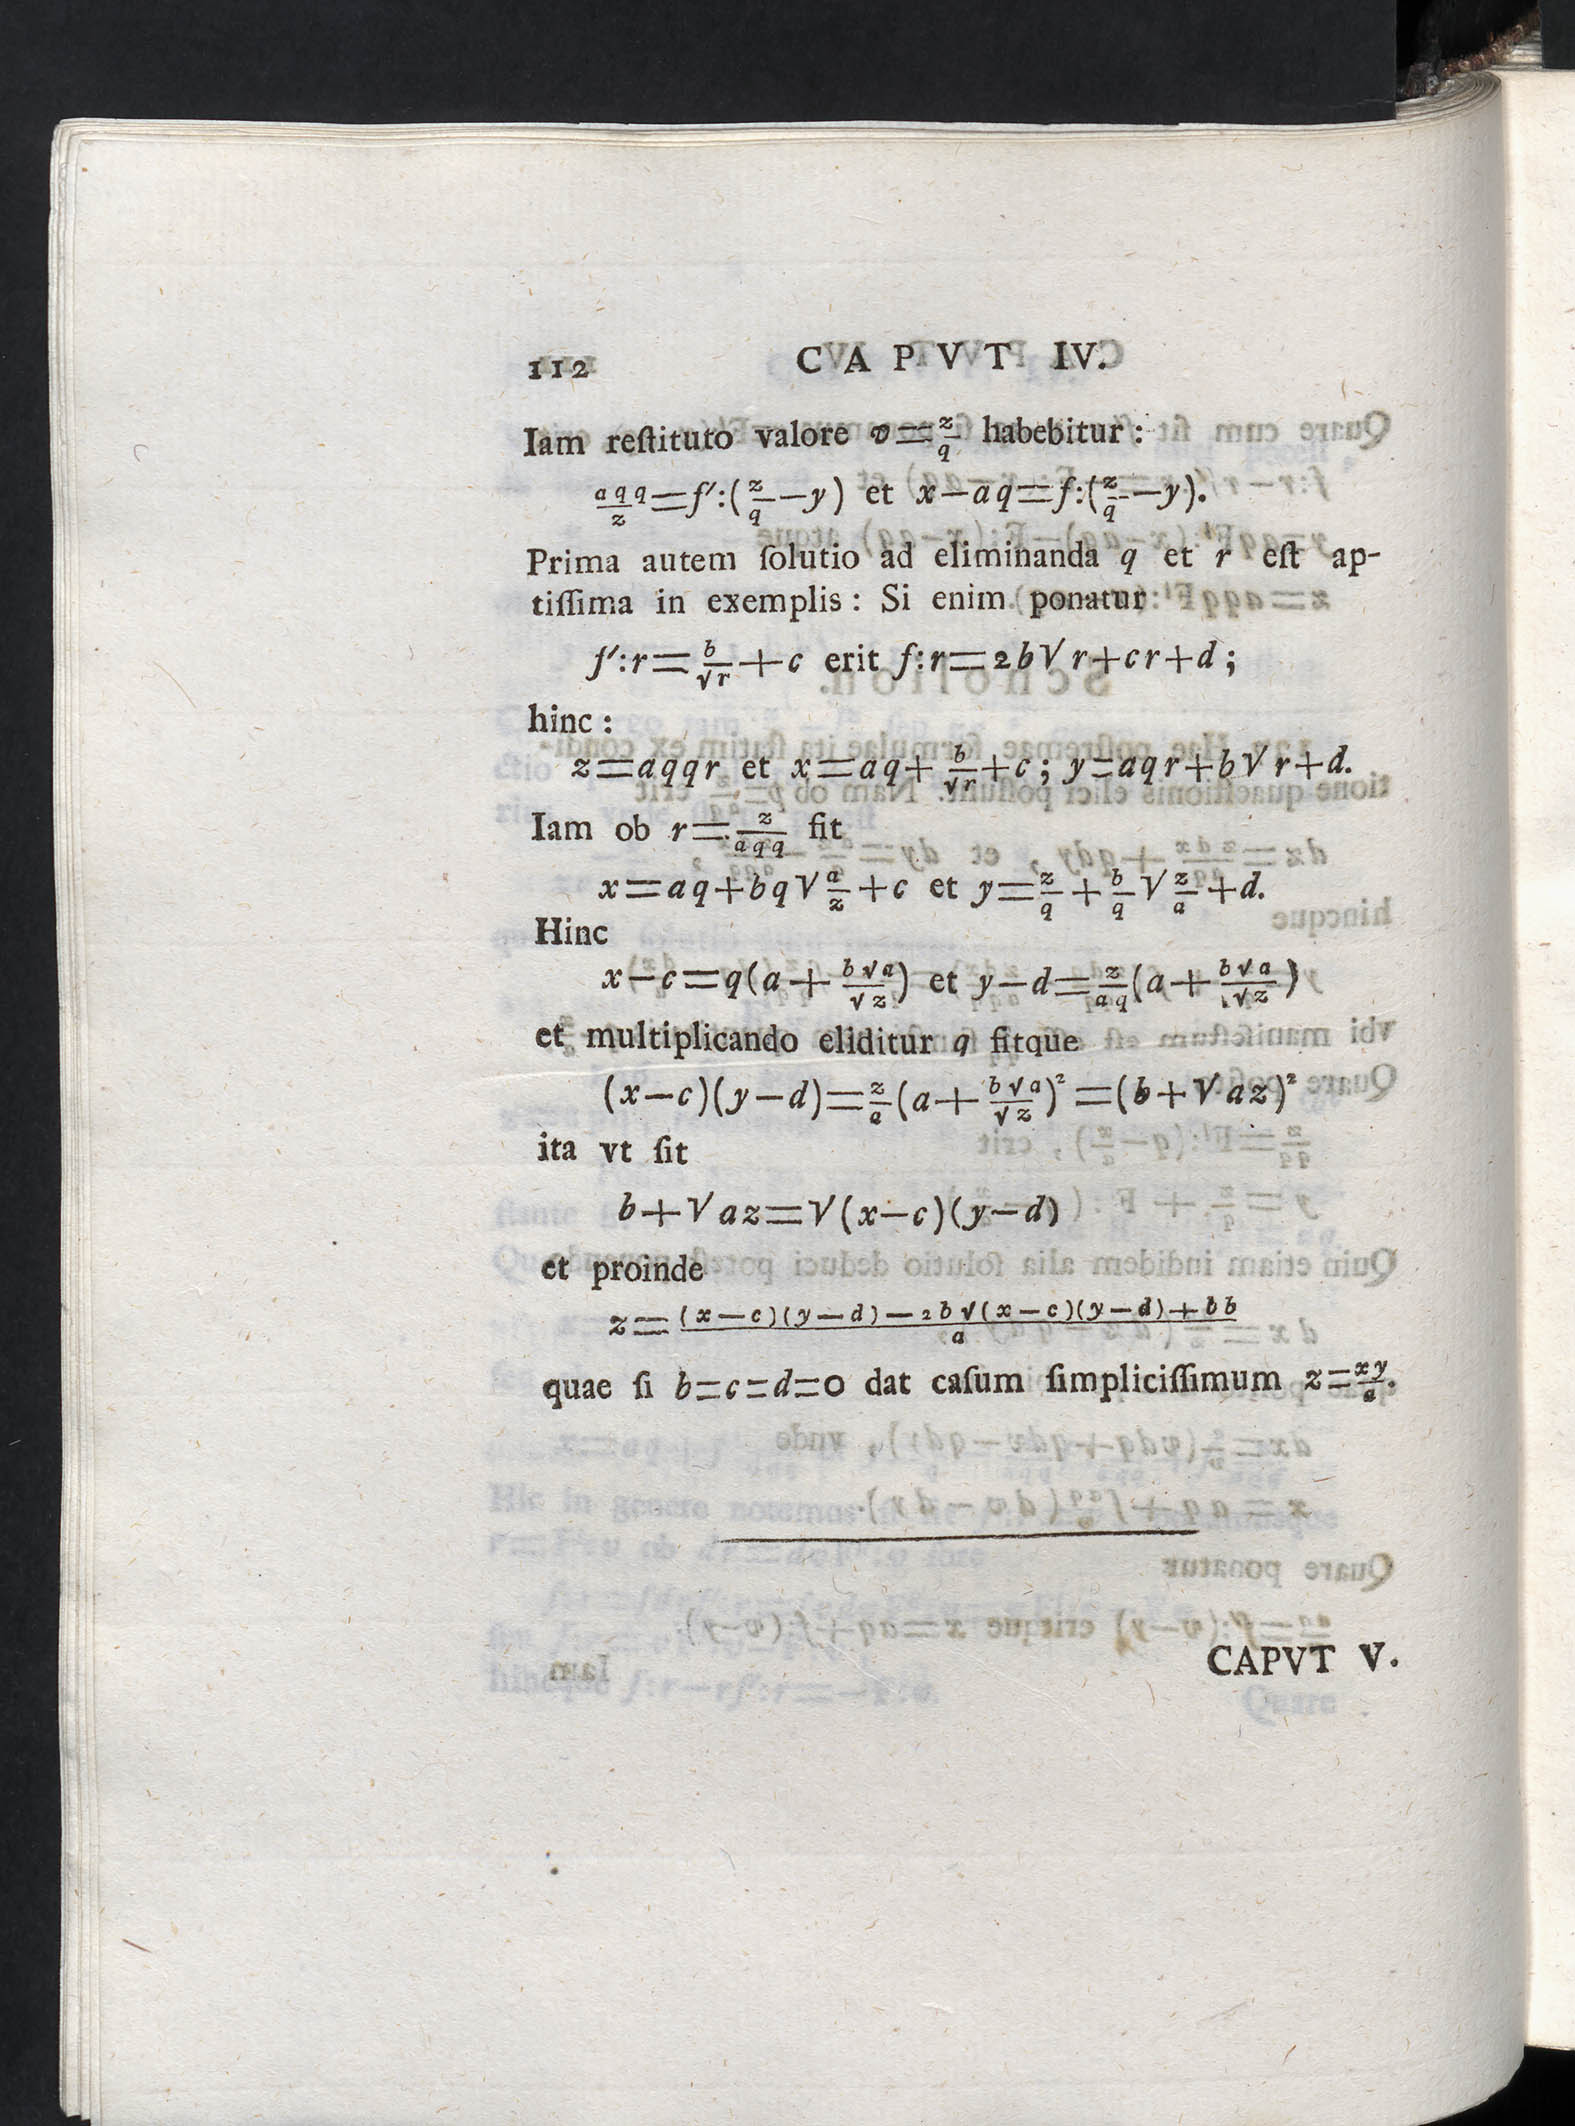 112 CAPVT IV.
Iam reſtituto valore v=z/q habebitur:
aqq/z=f′:(z/q−y) et x−aq=f:(z/q−y).
Prima autem ſolutio ad eliminanda q et r eſt ap-
tiſſima in exemplis: Si enim ponatur
f′:r=b/√r+c erit f:r=2b√r+cr+d;
hinc:
z=aqqr et x=aq+b/√r+c; y=aqr+b√r+d.
Iam ob r=z/aqq fit
x=aq+bq√a/z+c et y=z/q+b/q√z/a+d.
Hinc
x−c=q(a+b√a/√z) et y−d=z/aq(a+b√a/√z)
et multiplicando eliditur q fitque
(x−c)(y−d)=z/a(a+b√a/√z)²=(b+√az)²
ita vt ſit
b+√az=√(x−c)(y−d)
et proinde
z=(x−c)(y−d)−2b√(x−c)(y−d)+bb/a
quae ſi b=c=d=0 dat caſum ſimpliciſſimum z=xy/a.
CAPVT V.